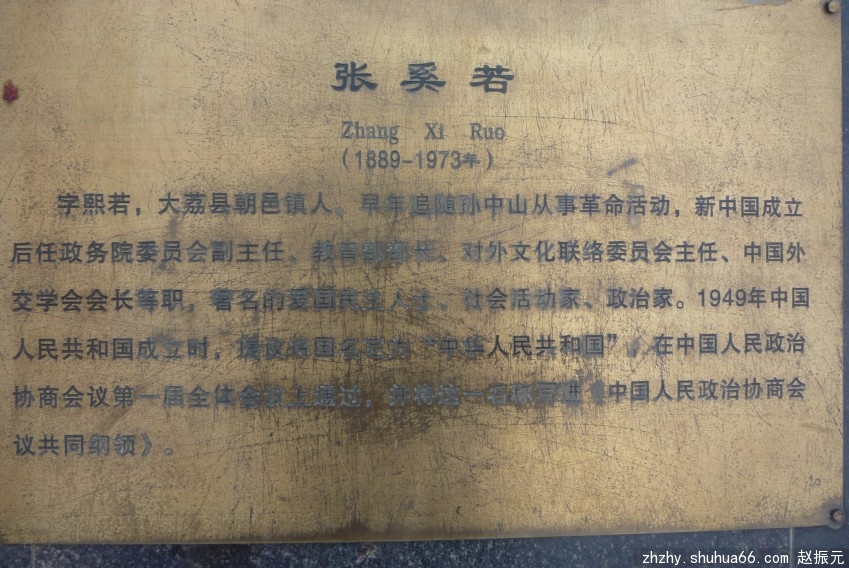 张奚若
Zhang Xi Ruo
(1889-1973年)
字熙若，大荔县朝邑镇人。早年追随孙中山从事革命活动，新中国成立
后任政务院委员会副主任、教育部部长、对外文化联络委员会主任、中国外
交学会会长等职，著名的爱国民主人士、社会活动家、政治家。1949年中国
人民共和国成立时，提议将国名定为“中华人民共和国”，在中国人民政治
协商会议第一届全体会议上通过，并将这一名称写进《中国人民政治协商会
议共同纲领》。
zhzhy.shuhua66.com 赵振元